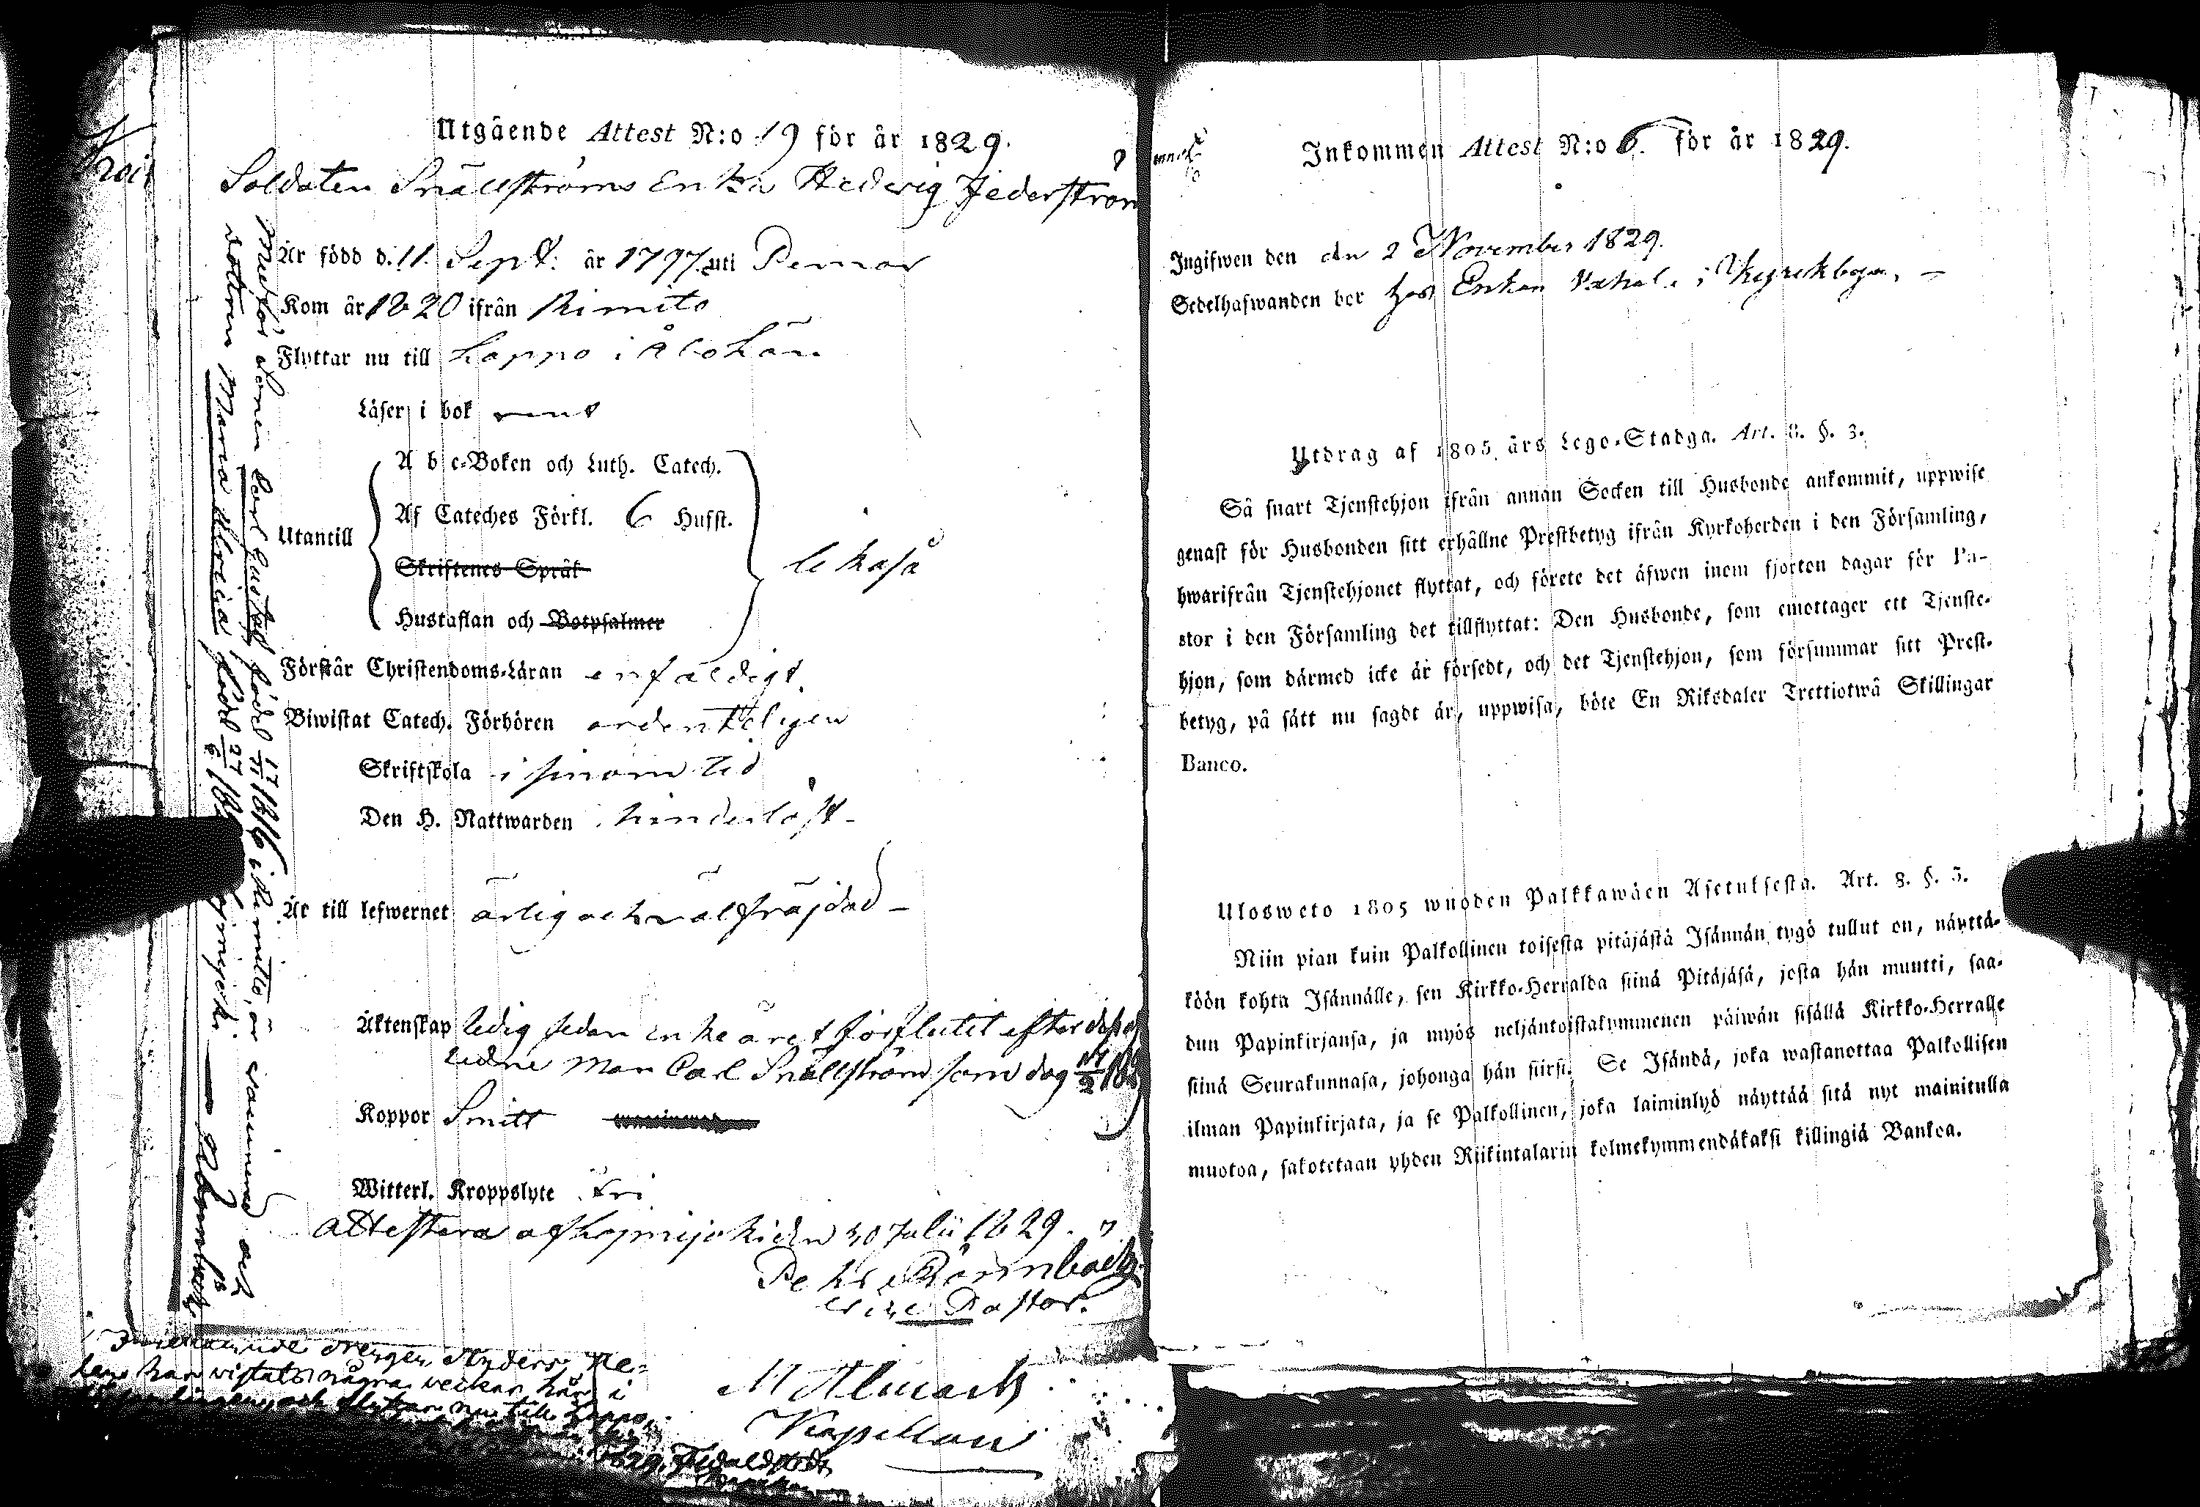 Utgående Attest N:o 19 för år 1829.
Soldaten Snällströms Enka Hedvig Jederström
Är född d. 11 Sept. år 1797 uti Pemar
Kom år 1820 ifrån Rimito
Flyttar nu till Loppo i Åbo Län
Läser i bok rent
A b c-Boken och Luth. Catech.
Af Cateches Förkl. 6 Hufst.
Utantill
Skriftenes Språk
likaså
Hustaflan och Botpsalmer
Förstår Christendoms-Läran enfaldigt
Biwistat Catech. Förhören ordenteligen
Skriftskola i sinom tid
Den H. Nattwarden hinderlöst
Är till lefwernet ärlig och välfräjdad
Äktenskap ledig sedan enkeåret förflutit efter
man Carl Snällström som dog
Koppor
Witterl. Kroppslyte fri
Attestera af Kojmijoki den 30 Julii 1829.
Rönnbäck
vice Pastor.
Medför sonen Carl Gustaf född 17/11 1816 i Rimito, och
dottren Maria född 27/6
har vistats några veckor här i
och flyttar nu till Loppo,
1829.
Kapellan
Inkommen Attest N:o 6. för år 1829.
Ingifwen den den 2 November 1829.
Sedelhafwanden bor hos Enkan i Kyrckbyn.
Utdrag af 1805 års Lego-Stadga. Art. 8. §. 3.
Så snart Tjenstehjon ifrån annan Socken till Husbonde ankommit, uppwise
genast för Husbonden sitt erhållne Prestbetyg ifrån Kyrkoherden i den Församling,
hwarifrån Tjenstehjonet flyttat, och förete det äfwen inom fjorton dagar för Pa-
stor i den Församling det tillflyttat: Den Husbonde, som emottager ett Tjenste-
hjon, som därmed icke är försedt, och det Tjenstehjon, som försummar sitt Prest-
betyg, på sätt nu sagdt är, uppwisa, böte En Riksdaler Trettiotwå Skillingar
Banco.
Ulosweto 1805 wuoden Palkkawäen Asetuksesta. Art. 8. §. 3.
Niin pian kuin Palkollinen toisesta pitäjästä Isännän tygö tullut on, näyttä-
köön kohta Isännälle, sen Kirkko-Herralda siinä Pitäjäsä, josta hän muutti, saa-
dun Papinkirjansa, ja myös neljäntoistakymmenen päiwän sisällä Kirkko-Herralle
siinä Seurakunnasa, johonga hän siirsi. Se Isändä, joka wastanottaa Palkollisen
ilman Papinkirjata, ja se Palkollinen, joka laiminlyö näyttää sitä nyt mainitulla
muotoa, sakotetaan yhden Riikintalarin kolmekymmendäkaksi killingiä Bankoa.